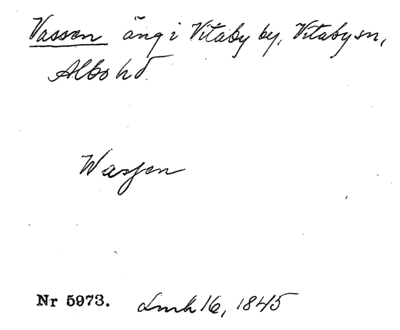 Vassen äng i Vitaby by, Vitaby sn,
Albo hd.
Wassen
Nr 5973. Lmh 16, 1845